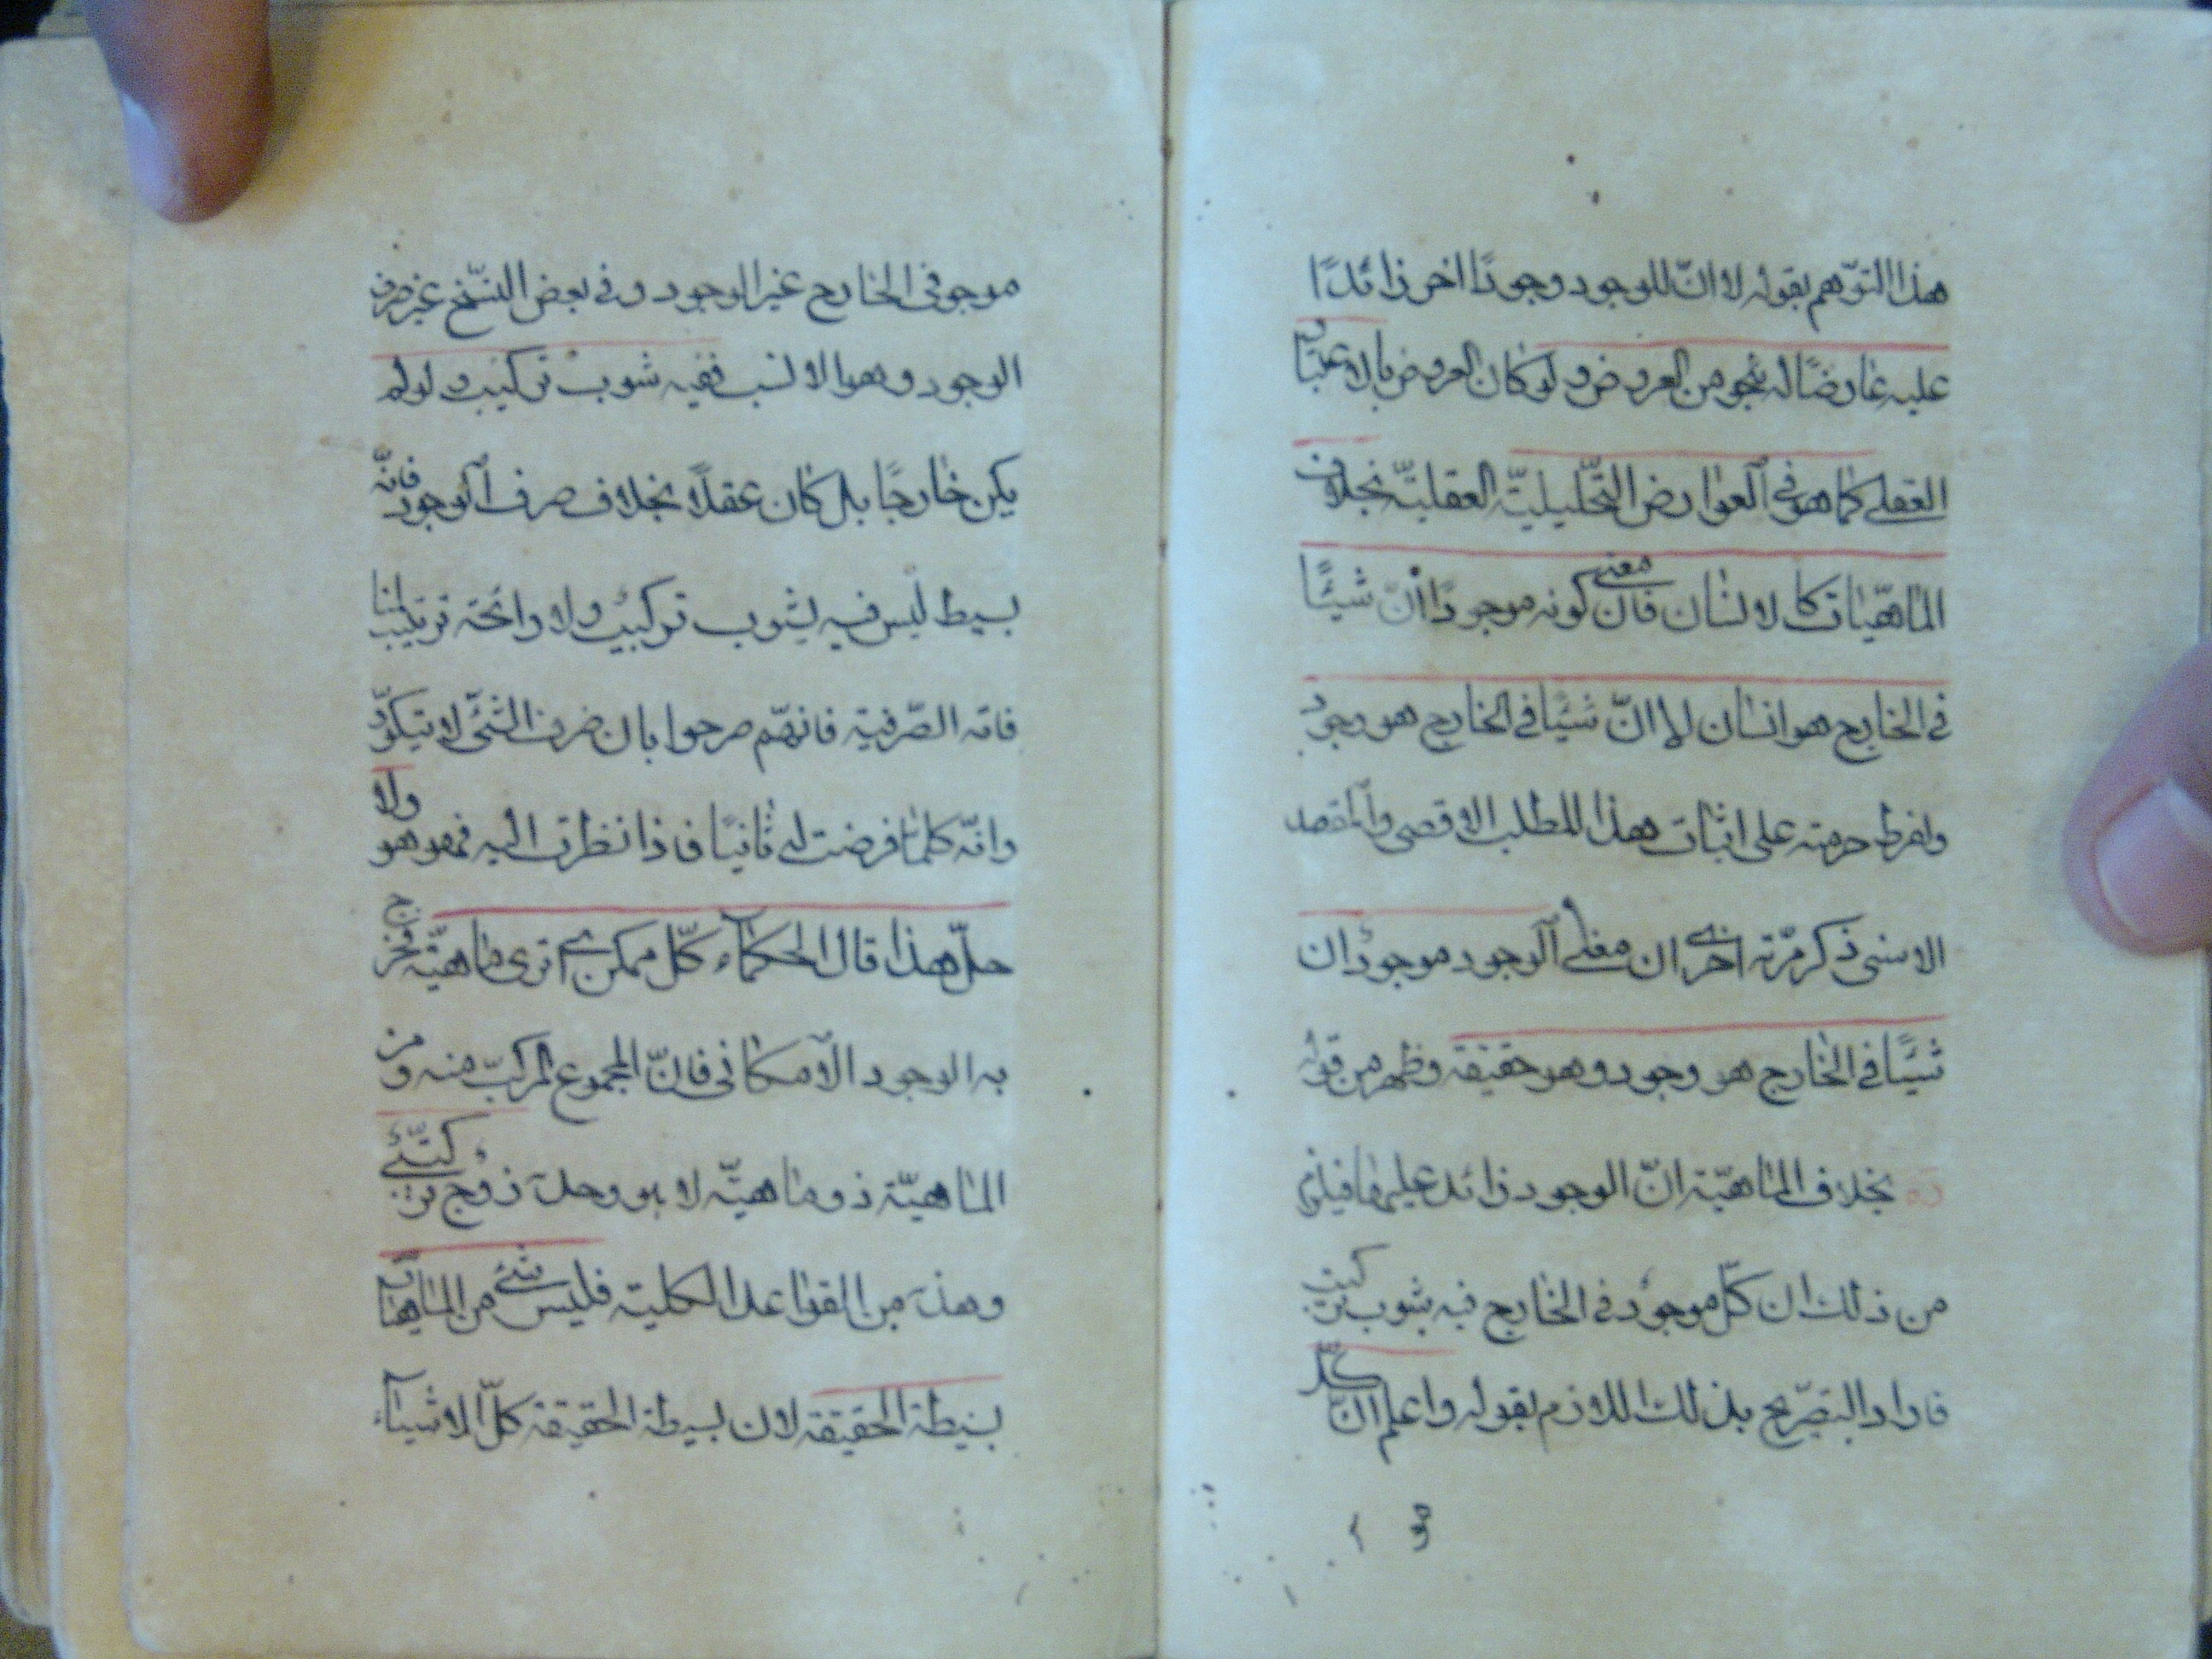 هذا التوّهم بقوله لا انّ للوجود وجودًا اخر زائدًا
عليه عارضًا له بنحو من العروض و لو كان العروض بالاعتبار
العقلى كما هو فى العوارض التّحليليّة العقليّة بخلاف
الماهيّات كالانسان فان معنى كونه موجودًا انّ شيئًا
فى الخارج هو انسان لا انّ شيئًا فى الخارج هو وجود
ولفرط حرمته على اثبات هذا المطلب الاقصى والمقصد
الاسنى ذكر مرّة اخرى ان معنى الوجود موجود ان
شيئًا فى الخارج هو وجود وهو حقيقة وظهر من قوله
بخلاف الماهيّة انّ الوجود زائد عليها فيلزم
من ذلك ان كلّ موجود فى الخارج فيه شوب تركيب
فاراد التصريح بذلك اللازم بقوله واعلم انّ كلّ
موجو فى الخارج غير الوجود و فى بعض النسّخ غير صرف
الوجود وهو الانسب ففيه شوب تركيب و لو لم
يكن خارجًا بل كان عقلاً بخلاف صرف الوجود فانّه
بسيط ليس فيه يشوب تركيب ولا رائحة ترتيب
فانه الصّرفية فانهّم صرحوا بان صرف الشئ لا يتكرّر
وانّه كلّما فرضت له ثانيًا فاذا نظرت اليه فهو هو ولا
هذا قال الحكماء كلّ ممكن اى ترى ماهيّة
به الوجود الامكانى فانّ المجموع المركّب منه ومن
الماهيّة ذو ماهيّة لا هو وحده زوج تركيبّى
وهذه من القواعد الكلية فليس شئ من الماهيّات
بسيطة الحقيقة لان بسيطة الحقيقة كلّ الاشياء